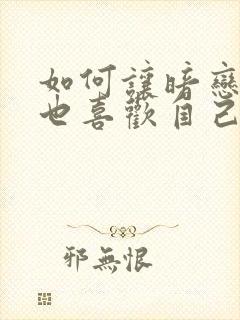 如何讓暗戀
也喜歡自己
邪無恨